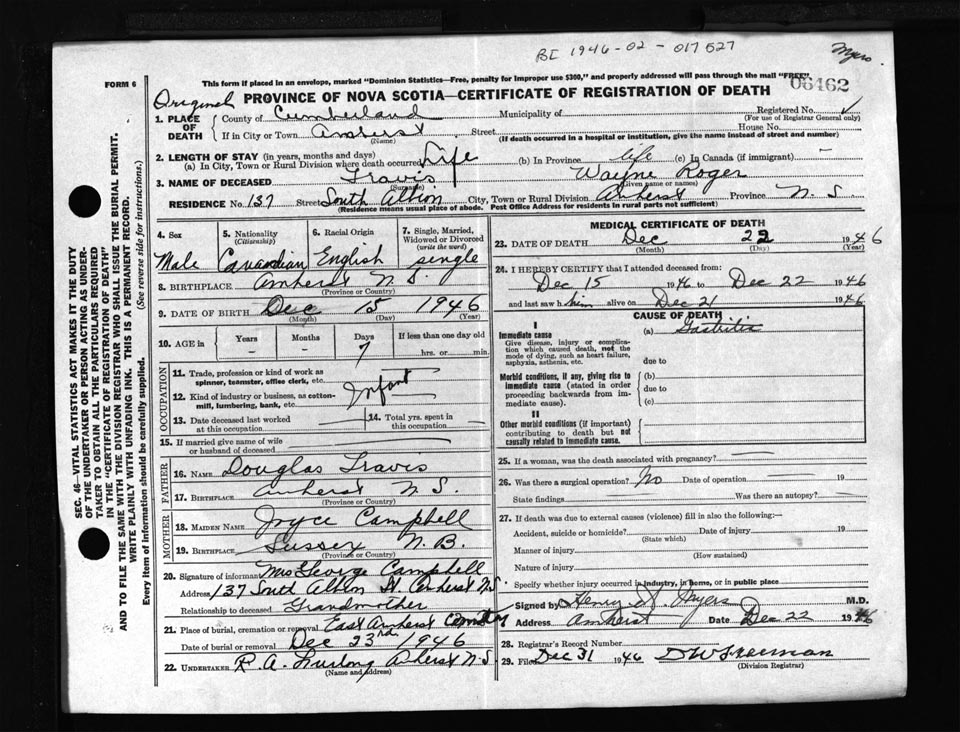 BE 1946-02-017527
Myers
This form if placed in an envelope, marked "Dominion Statistics—Free, penalty for improper use $300," and properly addressed will pass through the mail "FREE"
06462
FORM 6
Original PROVINCE OF NOVA SCOTIA—CERTIFICATE OF REGISTRATION OF DEATH
1. PLACE OF DEATH County of Cumberland Municipality of Registered No.
(For use of Registrar General only)
If in City or Town Amherst Street House No.
(Name) (If death occurred in a hospital or institution, give the name instead of street and number)
2. LENGTH OF STAY (in years, months and days)
(a) In City, Town or Rural Division where death occurred Life (b) In Province life (c) In Canada (if immigrant) —
3. NAME OF DECEASED Travis Wayne Roger
(Surname) (Given name or names)
RESIDENCE No. 137 Street South Albion City, Town or Rural Division Amherst Province N. S.
(Residence means usual place of abode. Post Office Address for residents in rural parts not sufficient)
4. Sex 5. Nationality (Citizenship) 6. Racial Origin 7. Single, Married, Widowed or Divorced (write the word)
Male Canadian English single
8. BIRTHPLACE Amherst N. S.
(Province or Country)
9. DATE OF BIRTH Dec 15 1946
(Month) (Day) (Year)
10. AGE in Years Months Days If less than one day old
— — 7 hrs. or min.
OCCUPATION
11. Trade, profession or kind of work as spinner, teamster, office clerk, etc.
12. Kind of industry or business, as cotton-mill, lumbering, bank, etc. Infant
13. Date deceased last worked at this occupation 14. Total yrs. spent in this occupation
15. If married give name of wife or husband of deceased
FATHER
16. NAME Douglas Travis
17. BIRTHPLACE Amherst N. S.
(Province or Country)
MOTHER
18. MAIDEN NAME Joyce Campbell
19. BIRTHPLACE Sussex N. B.
(Province or Country)
20. Signature of informant Mrs George Campbell
Address 137 South Albion St. Amherst N.S
Relationship to deceased Grandmother
21. Place of burial, cremation or removal East Amherst Cemetery
Date of burial or removal Dec 23rd 1946
22. UNDERTAKER R. A. Furlong Amherst N. S.
(Name and Address)
MEDICAL CERTIFICATE OF DEATH
23. DATE OF DEATH Dec 22 1946
(Month) (Day) (Year)
24. I HEREBY CERTIFY that I attended deceased from:
Dec 15 1946 to Dec 22 1946
and last saw him alive on Dec 21 1946
CAUSE OF DEATH
I
Immediate cause (a) Gastritis
Give disease, injury or complication which caused death, not the mode of dying, such as heart failure, asphyxia, asthenia, etc.
due to
Morbid conditions, if any, giving rise to immediate cause (stated in order proceeding backwards from immediate cause).
(b)
due to
(c)
II
Other morbid conditions (if important) contributing to death but not causally related to immediate cause.
25. If a woman, was the death associated with pregnancy? —
26. Was there a surgical operation? No Date of operation 19
State findings Was there an autopsy? —
27. If death was due to external causes (violence) fill in also the following:—
Accident, suicide or homicide? Date of injury 19
(State which)
Manner of injury
(How sustained)
Nature of injury
Specify whether injury occurred in industry, in home, or in public place
Signed by Henry N. Myers M.D.
Address Amherst Date Dec 22 1946
28. Registrar's Record Number
29. Filed Dec 31 1946
(Division Registrar)
SEC. 46—VITAL STATISTICS ACT MAKES IT THE DUTY
OF THE UNDERTAKER OR PERSON ACTING AS UNDER-
TAKER TO OBTAIN ALL THE PARTICULARS REQUIRED
IN THE "CERTIFICATE OF REGISTRATION OF DEATH"
AND TO FILE THE SAME WITH THE DIVISION REGISTRAR WHO SHALL ISSUE THE BURIAL PERMIT.
WRITE PLAINLY WITH UNFADING INK. THIS IS A PERMANENT RECORD.
Every item of information should be carefully supplied. (See reverse side for instructions.)